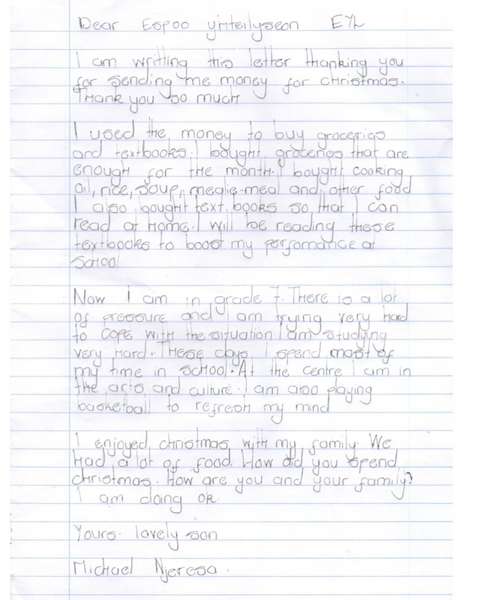 Dear Espoo yhteilyseon EYL
I am writting this letter thanking you
for sending me money for christmas.
Thank you so much
I used the money to buy groceries
and textbooks. I bought groceries that are
enough for the month. I bought cooking
oil, rice, soup, mealie-meal and other food
I also bought text books so that I can
read at home. I will be reading these
textbooks to boost my perfomance at
school
Now I am in grade 7. There is a lot
of pressure and I am trying very hard
to cope with the situation I am studying
very hard. These days I spend most of
my time in school. At the centre I am in
the arts and culture. I am also playing
basketball to refresh my mind
I enjoyed christmas with my family. We
had a lot of food. How did you spend
christmas. How are you and your family?
I am doing ok
Yours lovely son
Michael Njeresa.